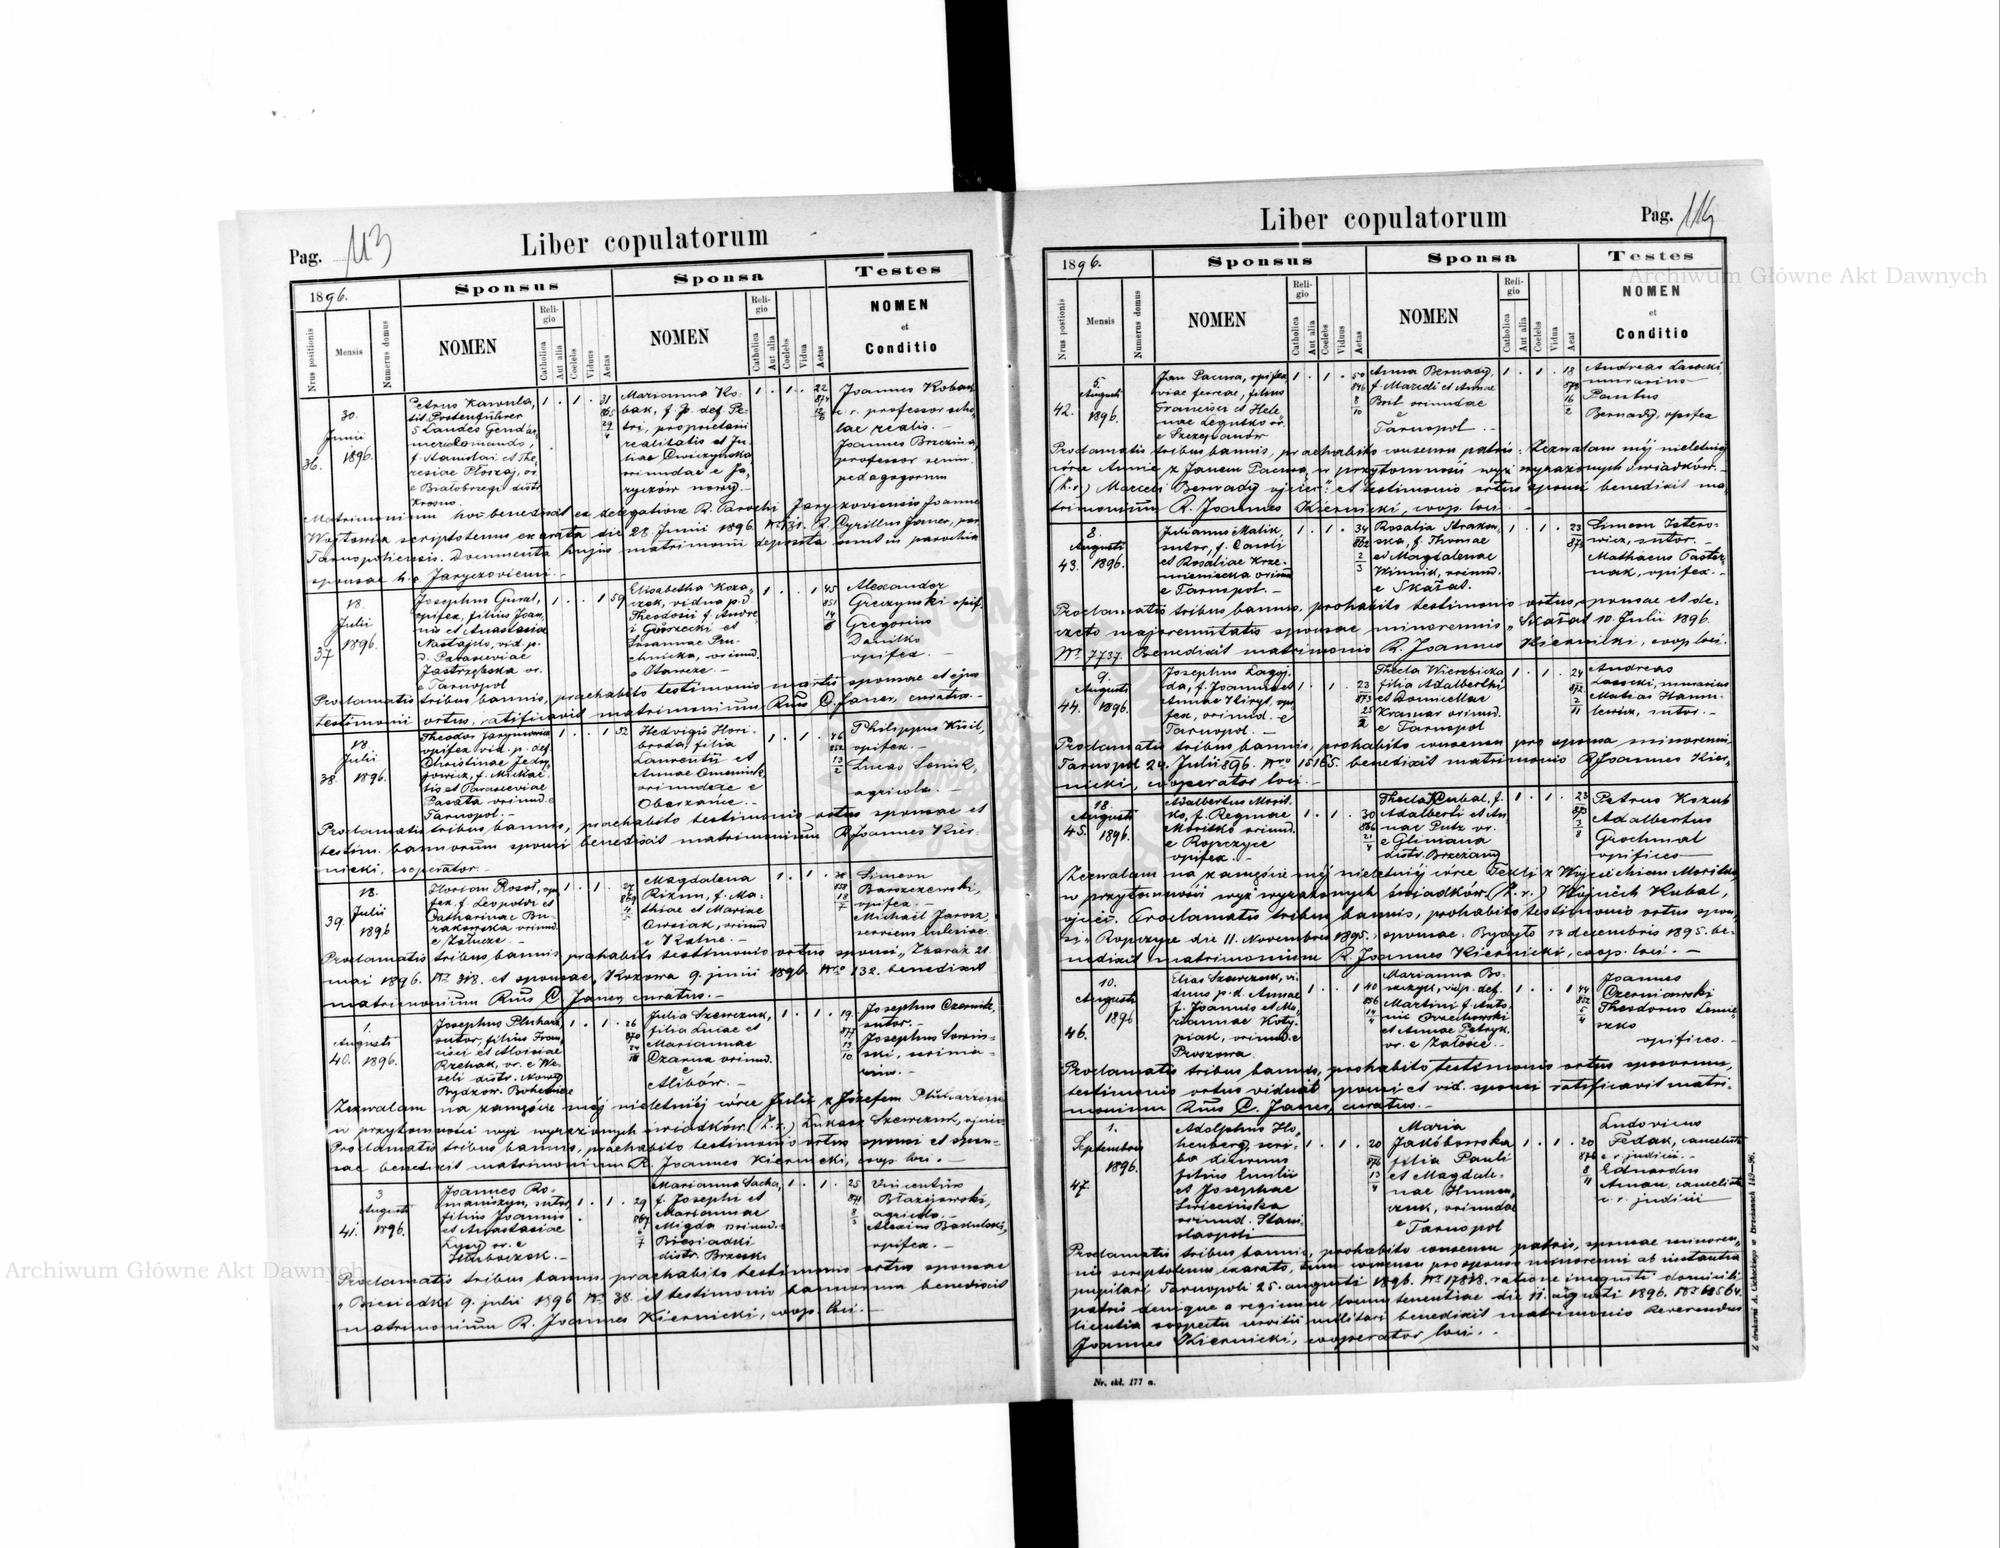 Pag. 113
Liber copulatorum
1896.
Sponsus
Sponsa
Testes
Nrus positionis
Mensis
Numerus domus
NOMEN
Religio
Catholica
Aut alia
Coelebs
Viduus
Aetas
NOMEN
Religio
Catholica
Aut alia
Coelebs
Vidua
Aetas
NOMEN
et
Conditio
36.
30.
Junii
1896.
Petrus Kawula,
tit Postenführer
5 Landes Gendar
meriekomando,
f. Stanislai et The
resiae Płoszaj, or.
e Białobrzegi distr
Krosno.
1 . 1 . 31
Marianna Ko-
bak, f. p. def. Pe-
tri, proprietarii
realitatis et Ju-
liae Cwiczynska
oriundae e Ja-
ryczów nowy.
1 . 1 . 22
Joannes Kobak
c. r. professor scho-
lae realis. -
Joannes Brzezina,
professor semin.
pedagogorum
Matrimonium hoc benedixit ex delegatione R. Parochi Jaryczoviensis Joannis
Wojtowicz scriptotenus exarata die 28 Junii 1896. Nr 131. R. Cyrillus Janer, par
Tarnopoliensis. Documenta hujus matrimonii deposita sunt in parochia
sponsae h. e. Jaryczovieni. -
37
18.
Julii
1896.
Josephus Gural,
opifex, filius Joan-
nis et Anastasiae
Nastajko, vid. p.
d. Parasceviae
Jastrzębska or.
e Tarnopol
1 . . 1 59
Elisabetha Koza
czek, vidua p. d
Theodosii f. Andre
i Górzecki et
Susannae Pru
chnicka, oriund.
1 . . 1 45
Alexander
Greczynski opif.
Gregorius
Danilko
opifex. -
Proclamatis tribus bannis, praehabito testimonio mortis sponsae et ejus
testimonii ortus, ratificavit matrimonium Rñus C. Janer, curatus. -
38.
18.
Julii
1896.
Theodor Jarymowicz
opifex vid. p. def.
Christinae Jedy
jowicz, f. Michae-
lis et Parasceviae
Pasata oriund. e
Tarnopol. -
1 . . 1 52
Hedvigis Hori-
broda filia
Laurentii et
Annae
oriundae e
Obarzańce. -
1 . 1 . 46
Philippus Kuil,
opifex. -
Lucas Senik,
agricola. -
Proclamatis tribus bannis, praehabito testimonio ortus sponsae et
testim. bannorum sponsi benedixit matrimonium R. Joannes Kier-
nicki, cooperator. -
39.
18.
Julii
1896
Florian Rosół, opi
fex f. Leopoldi et
Catharinae Bu-
rakowska oriund.
e Załucze. -
1 . 1 . 27
Magdalena
Rizun, f. Ma-
thiae et Mariae
Owsiak, oriund
e Kalne. -
1 . 1 .
Simeon
Barszczewski,
opifex. -
Michael Jarosz
serviens ecclesiae.
Proclamatis tribus bannis, praehabito testimonio ortus sponsi „Zbaraż 21.
mai 1896. Nr 318. et sponsae „Kozowa 9. junii 1896. Nro 132. benedixit
matrimonium Rñus C. Janer, curatus. -
40.
1.
Augusti
1896.
Josephus Pluharz,
sutor, filius Fran-
cisci et Aloisiae
Rzehak, or. e We-
seli distr. Nowy
Bydżow. Bohemiae
1 . 1 . 26
Julia Szewczuk,
filia Lucae et
Mariannae
Czarna oriund.
e
Alibów. -
1 . 1 . 19.
Josephus Czornik,
sutor. -
Josephus Sowin-
ski,
Zezwalam na zamęście mój nieletniéj córce Julii z Józefem Pluharzem
w przytomności wyż wyrażonych świadków. (L.r.) Łukasz Szewczuk, ojciec.
Proclamatis tribus bannis, praehabito testimonio ortus sponsi et spon-
sae benedixit matrimonium R. Joannes Kiernicki, coop. loci. -
41.
3
Augusti
1896.
Joannes Ro-
manczyn, sutor,
filius Joannis
et Anastasiae
Łysy or. e
Hłuboczek. -
1 . 1 . 29
Marianna Sacha,
f. Josephi et
Mariannae
Migda oriund. e
Biesiadki
distr. Brzesk.
1 . 1 . 25
Vincentius
Błażejewski,
agricola. -
Alexius Bakulski,
opifex. -
Proclamatis tribus bannis praehabito testimonio ortus sponsae
„Biesiadki 9. julii 1896 Nr. 38. et testimonio bannorum benedixit
matrimonium R. Joannes Kiernicki, coop. loci. -
Liber copulatorum
Pag. 114
1896.
Sponsus
Sponsa
Testes
Nrus positionis
Mensis
Numerus domus
NOMEN
Religio
Catholica
Aut alia
Coelebs
Viduus
Aetas
NOMEN
Religio
Catholica
Aut alia
Coelebs
Vidua
Aeat
NOMEN
et
Conditio
42.
5.
Augusti
1896.
Jan Pacuna, opifex
viae ferreae, filius
Francisci et Hele-
nae Legutko or.
e Szczepanów
1 . 1 . 50
Anna Bernady,
f. Marceli et Annae
Bril oriundae
e
Tarnopol. -
1 . 1 . 18
Andreas Lasocki
murarius
Paulus
Bernady, opifex
Proclamatis tribus bannis, praehabito consensu patris: Zezwalam méj nieletniéj
córce Annie z Janem Pacuna, w przytomności wyż wyrażonych świadków. -
(L.r.) Marceli Bernady ojciec" et testimonio ortus sponsi benedixit ma-
trimonium R. Joannes Kiernicki, coop. loci. -
43.
8.
Augusti
1896.
Julianus Malik,
sutor, f. Caroli
et Rosaliae Krze-
mieniecka oriund
e Tarnopol. -
1 . 1 . 34
Rosalia Strakow
ska, f. Thomae
et Magdalenae
Winnik, oriund.
e Skałat.
1 . 1 . 23
Simeon Istero-
wicz, sutor. -
Mathaeus Paster-
nak, opifex. -
Proclamatis tribus bannis, prohabito testimonio ortus sponsae et de-
creto majorennitatis sponsae minorennis „Skałat 10. Julii 1896.
Nr 7737. Benedixit matrimonio R. Joannes Kiernicki, coop. loci.
44.
9.
Augusti
1896.
Josephus Zagaj-
da, f. Joannis et
Annae Kiryl, opi
fex, oriund. e
Tarnopol. -
1 . 1 . 23
Thecla Wierzbicka
filia Adalberthi
et Domicellae
Kramar oriund.
e Tarnopol
1 . 1 . 24
Andreas
Lasocki, murarius
Matias Hamu-
lewicz, sutor. -
Proclamatis tribus bannis, prohabito consensu pro sponsa minorenni
Tarnopol 24. Julii 896. Nro 15165. benedixit matrimonio R. Joannes Kier-
nicki, cooperator loci. -
45.
18.
Augusti
1896.
Adalbertus Morit-
ko, f. Reginae
Moritko oriund.
e Ropczyce
opifex. -
1 . 1 . 30
Thecla Kubal, f.
Adalberti et An
nae Putz or.
e Gliniana
distr. Brzeżany
1 . 1 . 23
Petrus Kozub
Adalbertus
Grochmal
opifices
Zezwalam na zamęście méj nieletniéj córce Tekli z Wojciechem Moritko
w przytomności wyż wyrażonych świadków. (L.r.) Wojciech Kubal,
ojciec. Proclamatis tribus bannis, prohabito testimonio ortus spon-
si „Ropczyce die 11. Novembris 1895. sponsae: Bydyło 13 decembris 1895. be-
nedixit matrimonium R. Joannes Kiernicki, coop. loci. -
46.
10.
Augusti
1896
Elias Szewczuk, vi-
duus p. d. Annae
f. Joannis et Ma-
riannae Koty-
piak, oriund. e
Proszowa
1 . . 1 40
Marianna Bo-
szczyk, vid. p. def.
Martini f. Anto-
nii Orzechowski
et Annae Petryk,
or. e Załośce. -
1 . . 1 44
Joannes
Czerniawski
Theodorus Lemie-
szko
opifices. -
Proclamatis tribus bannis, prohabito testimonio ortus sponsorum,
testimonio ortus viduat. sponsi et vid. sponsi ratificavit matri-
monium Rñus C. Janer, curatus. -
47.
1.
Septembris
1896.
Adolphus Ho-
henberg, scri-
ba diurnus
filius Emilii
et Josephae
Świecińska
oriund. Stani-
slaopoli
1 . 1 . 20
Maria
Jakóbowska
filia Pauli
et Magdale-
nae Humen-
czuk, oriundae
e Tarnopol
1 . 1 . 20
Ludovicus
Fedak, cancelista
c. r. judicii. -
Eduardus
Aman, cancelista
c. r. judicii
Proclamatis tribus bannis, prohabito consensu patris, sponsae minoren-
nis scriptotenus exarato, tum consensu pro sponso minorenni ab instantia
pupilari Tarnopoli 25. augusti 1896. Nr. 17818. ratione incogniti domicilii
patris denique a regimine locumtenentiae die 11. augusti 1896.
licentia respectu servitii militari benedixit matrimonio Reverendus
Joannes Kiernicki, cooperator loci. -
Nr. skł. 177 a.
Z drukarni A. Cichockiego w Brzeżanach 149—96.
Archiwum Główne Akt Dawnych
Archiwum Główne Akt Dawnych